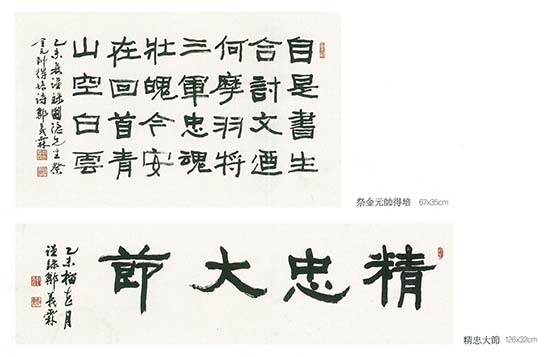 自是書生
合討文迺
何摩羽將
三軍忠魂
壯魄今安
在回首青
山空白雲
乙未夏謹錄圃隱先生祭
金元帥得培詩 鄭義霖
祭金元帥得培 67x35cm
精忠大節
乙未榴花月
謹錄鄭義霖
精忠大節 126x32cm